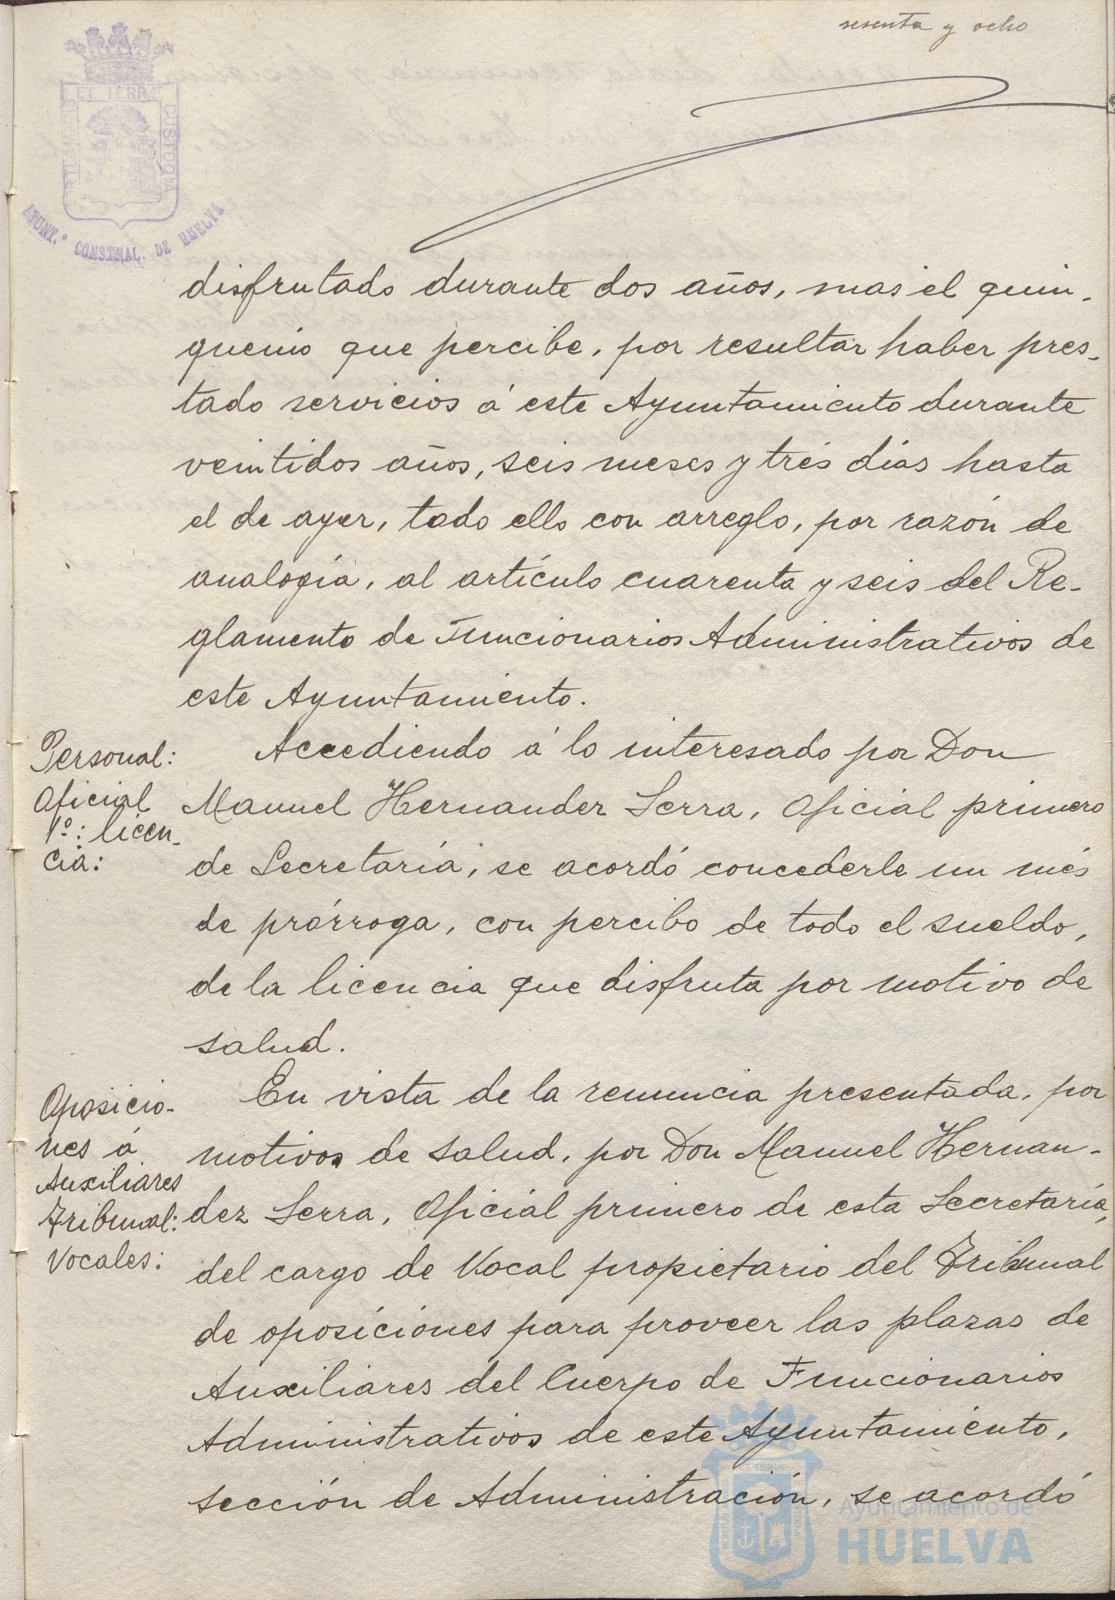 sesenta y ocho
ET TERRÆ
CUSTODIA
AYUNT.º CONSTNAL. DE HUELVA
disfrutado durante dos años, mas el quin-
quenio que percibe, por resultar haber pres-
tado servicios á este Ayuntamiento durante
veintidos años, seis meses y tres días hasta
el de ayer, todo ello con arreglo, por razón de
analogía, al artículo cuarenta y seis del Re-
glamento de Funcionarios Administrativos de
este Ayuntamiento.
Personal:
Oficial
1º: licen-
cia:
Accediendo á lo interesado por Don
Manuel Hernander Serra, Oficial primero
de Secretaría, se acordó concederle un més
de prórroga, con percibo de todo el sueldo,
de la licencia que disfruta por motivo de
salud.
Oposicio-
nes á
Auxiliares
Tribunal:
Vocales:
En vista de la renuncia presentada, por
motivos de salud, por Don Manuel Hernan-
dez Serra, Oficial primero de esta Secretaría,
del cargo de Vocal propietario del Tribunal
de oposiciónes para proveer las plazas de
Auxiliares del Cuerpo de Funcionarios
Administrativos de este Ayuntamiento,
sección de Administración, se acordó
Ayuntamiento de
HUELVA